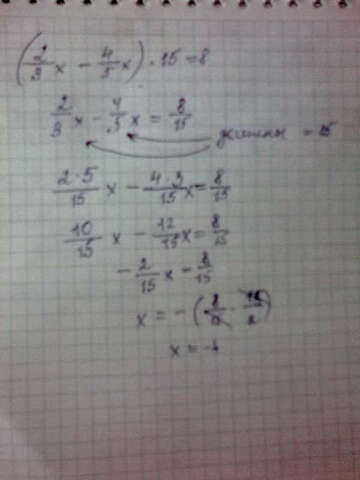 (2/3 x - 4/5 x) · 15 = 8
2/3 x - 4/5 x = 8/15
= 15
2·5/15 x - 4·3/15 x = 8/15
10/15 x - 12/15 x = 8/15
- 2/15 x = 8/15
x = - (8/15 · 15/2)
x = -4